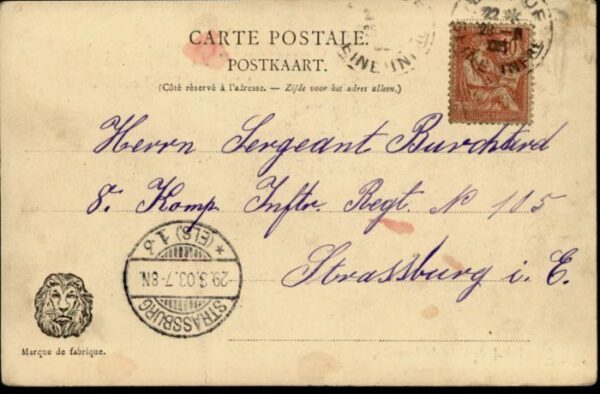 CARTE POSTALE.
POSTKAART.
(Côté réservé à l'adresse. — Zijde voor het adres alleen.)
Herrn Sergeant
8. Komp. Inftr. Regt. № 105
Strassburg i. E.
STRASSBURG
29.3.03.7-8N.
* (ELS) 1.6
Marque de fabrique.